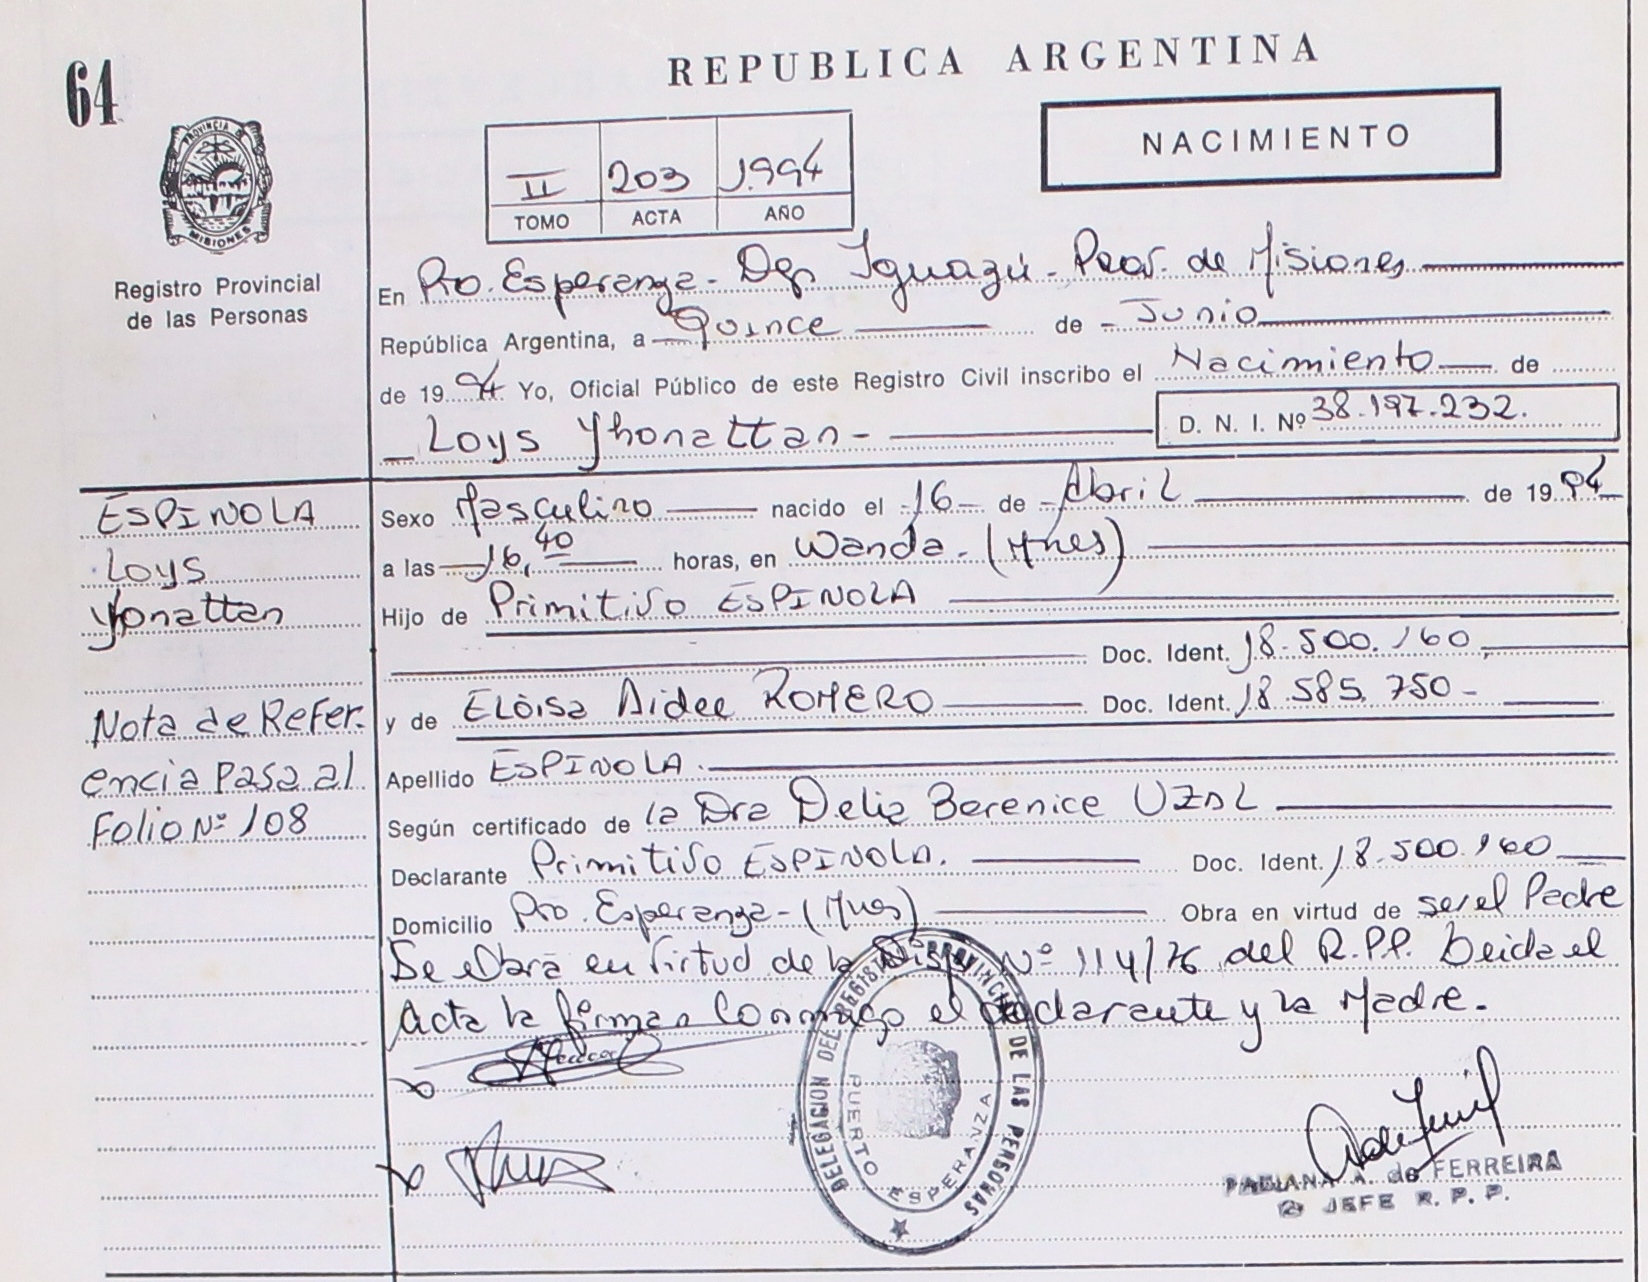 64
REPUBLICA ARGENTINA
NACIMIENTO
II 203 1.994
TOMO ACTA AÑO
PROVINCIA DE MISIONES
Registro Provincial
de las Personas
En Pto. Esperanza - Dep. Iguazú - Prov. de Misiones
República Argentina, a Quince de Junio
de 1994 Yo, Oficial Público de este Registro Civil inscribo el Nacimiento de
Loys Yhonattan - D. N. I. Nº 38.197.232.
ESPINOLA
Loys
Yonattan
Nota de Refer-
encia Pasa al
Folio Nº 108
Sexo Masculino nacido el 16 de Abril de 1994
a las 16,40 horas, en Wanda - (Mnes)
Hijo de Primitivo ESPINOLA
Doc. Ident. 18.500.160
y de ELOisa Aidee ROMERO Doc. Ident. 18.585.750 -
Apellido ESPINOLA.
Según certificado de la Dra Delia Berenice UZAL
Declarante Primitivo ESPINOLA. Doc. Ident. 18.500.160
Domicilio Pto. Esperanza - (Mnes) Obra en virtud de ser el Padre
Se obra en virtud de la Disp. Nº 114/76 del R.P.P. Leida el
Acta la firman conmigo el declarante y la Madre.
DELEGACION DEL REGISTRO PROVINCIAL DE LAS PERSONAS
PUERTO ESPERANZA
FABIANA A. de FERREIRA
JEFE R. P. P.